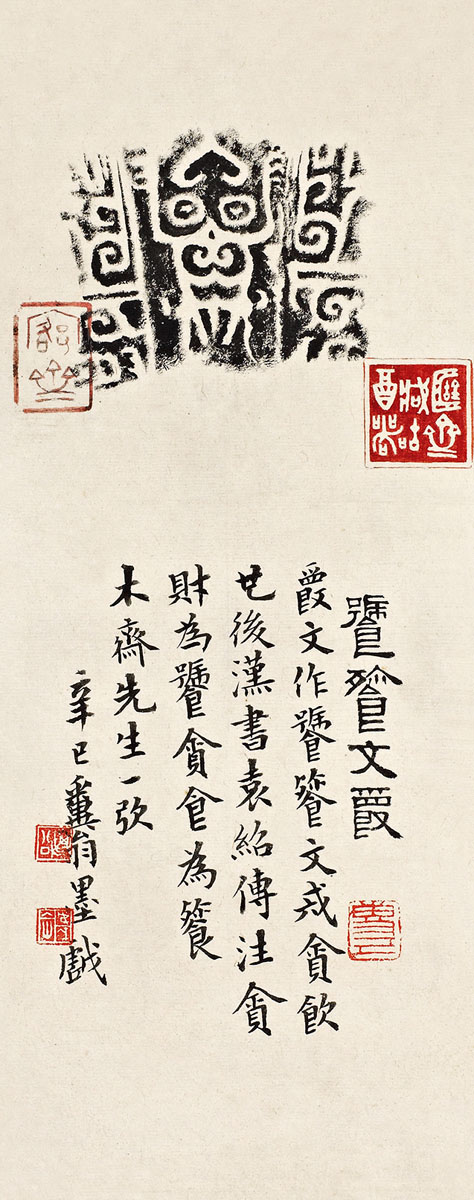 饕餮文斝
斝文作饕餮文戒貪飲
也後漢書袁紹傳注貪
財為饕貪食為餮
木齋先生一弞
辛巳糞翁墨戲